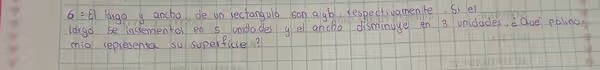 6 = El largo y ancho de un rectangulo son a y b, respectivamente. Si el
largo se incrementa en 5 unidades y el ancho disminuye en 3 unidades, ¿Qué polino-
mio representa su superficie?